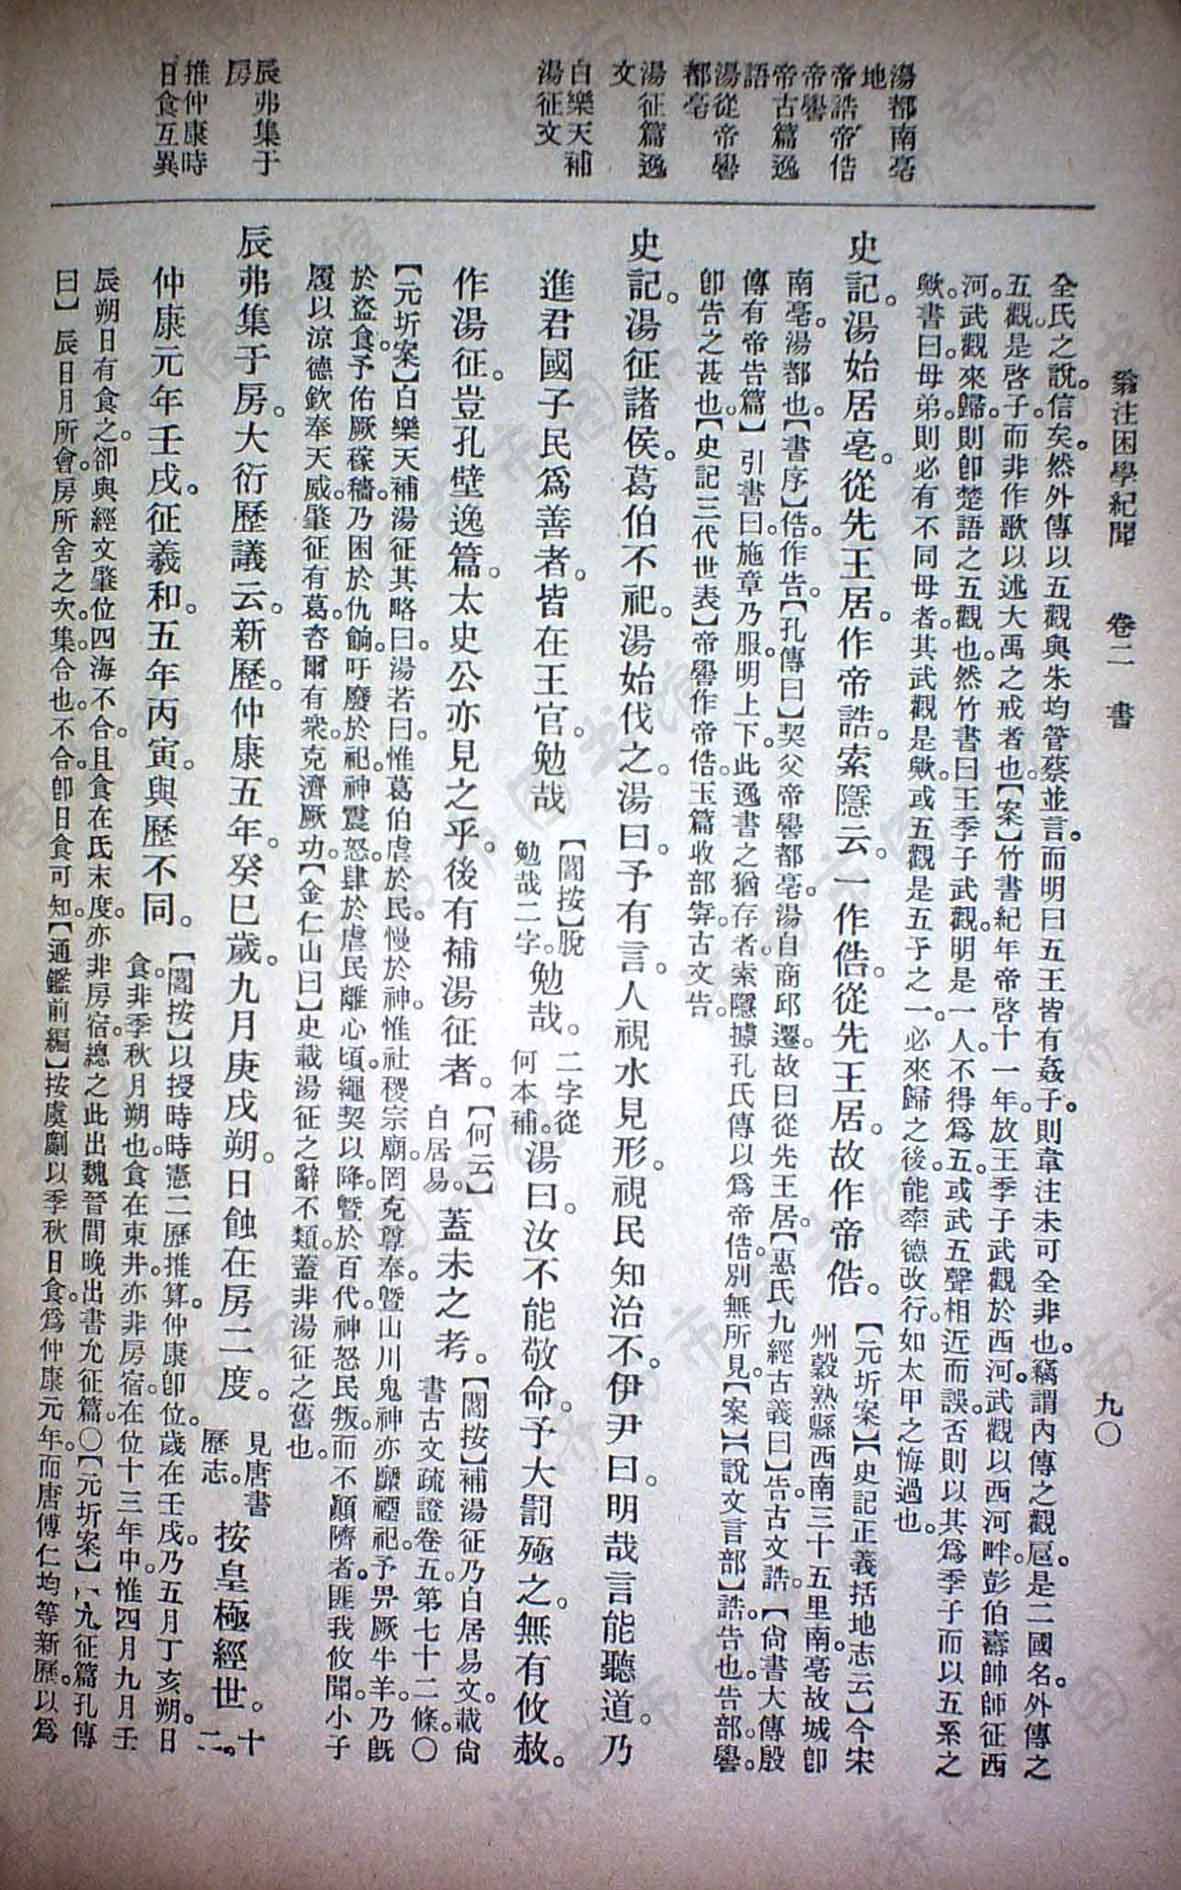 翁注困學紀聞　卷二　書　九〇
湯都南亳
地
帝誥帝俈
帝嚳
帝古篇逸
語
湯從帝嚳
都亳
湯征篇逸
文
白樂天補
湯征文
辰弗集于
房
推仲康時
日食互異
全氏之說。信矣。然外傳以五觀與朱均管蔡並言。而明曰五王皆有姦子。則韋注未可全非也。竊謂內傳之觀扈。是二國名。外傳之
五觀。是啓子。而非作歌以述大禹之戒者也。【案】竹書紀年帝啓十一年。放王季子武觀於西河。武觀以西河畔。彭伯壽帥師征西
河。武觀來歸。則卽楚語之五觀也。然竹書曰王季子武觀。明是一人。不得爲五。或武五聲相近而誤。否則以其爲季子而以五系之
歟。書曰母弟。則必有不同母者。其武觀是歟。或五觀是五子之一。必來歸之後。能率德改行。如太甲之悔過也。
史記。湯始居亳。從先王居。作帝誥。索隱云。一作俈。從先王居。故作帝俈。
【元圻案】【史記正義括地志云】今宋
州穀熟縣西南三十五里南亳故城卽
南亳。湯都也。【書序】俈作告。【孔傳曰】契父帝嚳都亳。湯自商邱遷。故曰從先王居。【惠氏九經古義曰】告。古文誥。【尙書大傳殷
傳有帝告篇】引書曰。施章乃服。明上下。此逸書之猶存者。索隱據孔氏傳以爲帝俈。別無所見。【案】【說文言部】誥。告也。告部。嚳。
卽告之甚也。【史記三代世表】帝嚳作帝俈。玉篇收部𢍎。古文告。
史記。湯征諸侯。葛伯不祀。湯始伐之。湯曰。予有言。人視水見形。視民知治不。伊尹曰。明哉言能聽道。乃
進君國子民爲善者。皆在王官。勉哉
【閻按】脫
勉哉二字。
勉哉。
二字從
何本補。
湯曰。汝不能敬命。予大罰殛之。無有攸赦。
作湯征。豈孔壁逸篇。太史公亦見之乎。後有補湯征者。
【何云】
白居易。
蓋未之考。
【閻按】補湯征乃白居易文。載尙
書古文疏證卷五。第七十二條。〇
【元圻案】白樂天補湯征其略曰。湯若曰。惟葛伯虐於民。慢於神。惟社稷宗廟。罔克尊奉。曁山川鬼神。亦靡禋祀。予畀厥牛羊。乃旣
於盜食。予佑厥稼穡。乃困於仇餉。吁廢於祀。神震怒。肆於虐。民離心。頃繩契以降。曁於百代。神怒民叛而不顚隮者。匪我攸聞。小子
履以涼德。欽奉天威。肇征有葛。咨爾有衆。克濟厥功。【金仁山曰】史載湯征之辭不類。蓋非湯征之舊也。
辰弗集于房。大衍歷議云。新歷。仲康五年。癸巳歲。九月庚戌朔。日蝕在房二度。
見唐書
歷志。
按皇極經世。
十
二。
仲康元年壬戌。征羲和。五年丙寅。與歷不同。
【閻按】以授時時憲二歷推算。仲康卽位。歲在壬戌。乃五月丁亥朔。日
食。非季秋月朔也。食在東井。亦非房宿。在位十三年中。惟四月九月壬
辰朔日有食之。卻與經文肇位四海不合。且食在氐末度。亦非房宿。總之此出魏晉間晚出書允征篇。〇【元圻案】【允征篇孔傳
曰】辰日月所會。房所舍之次。集。合也。不合。卽日食可知。【通鑑前編】按虞劇以季秋日食。爲仲康元年。而唐傅仁均等新歷。以爲